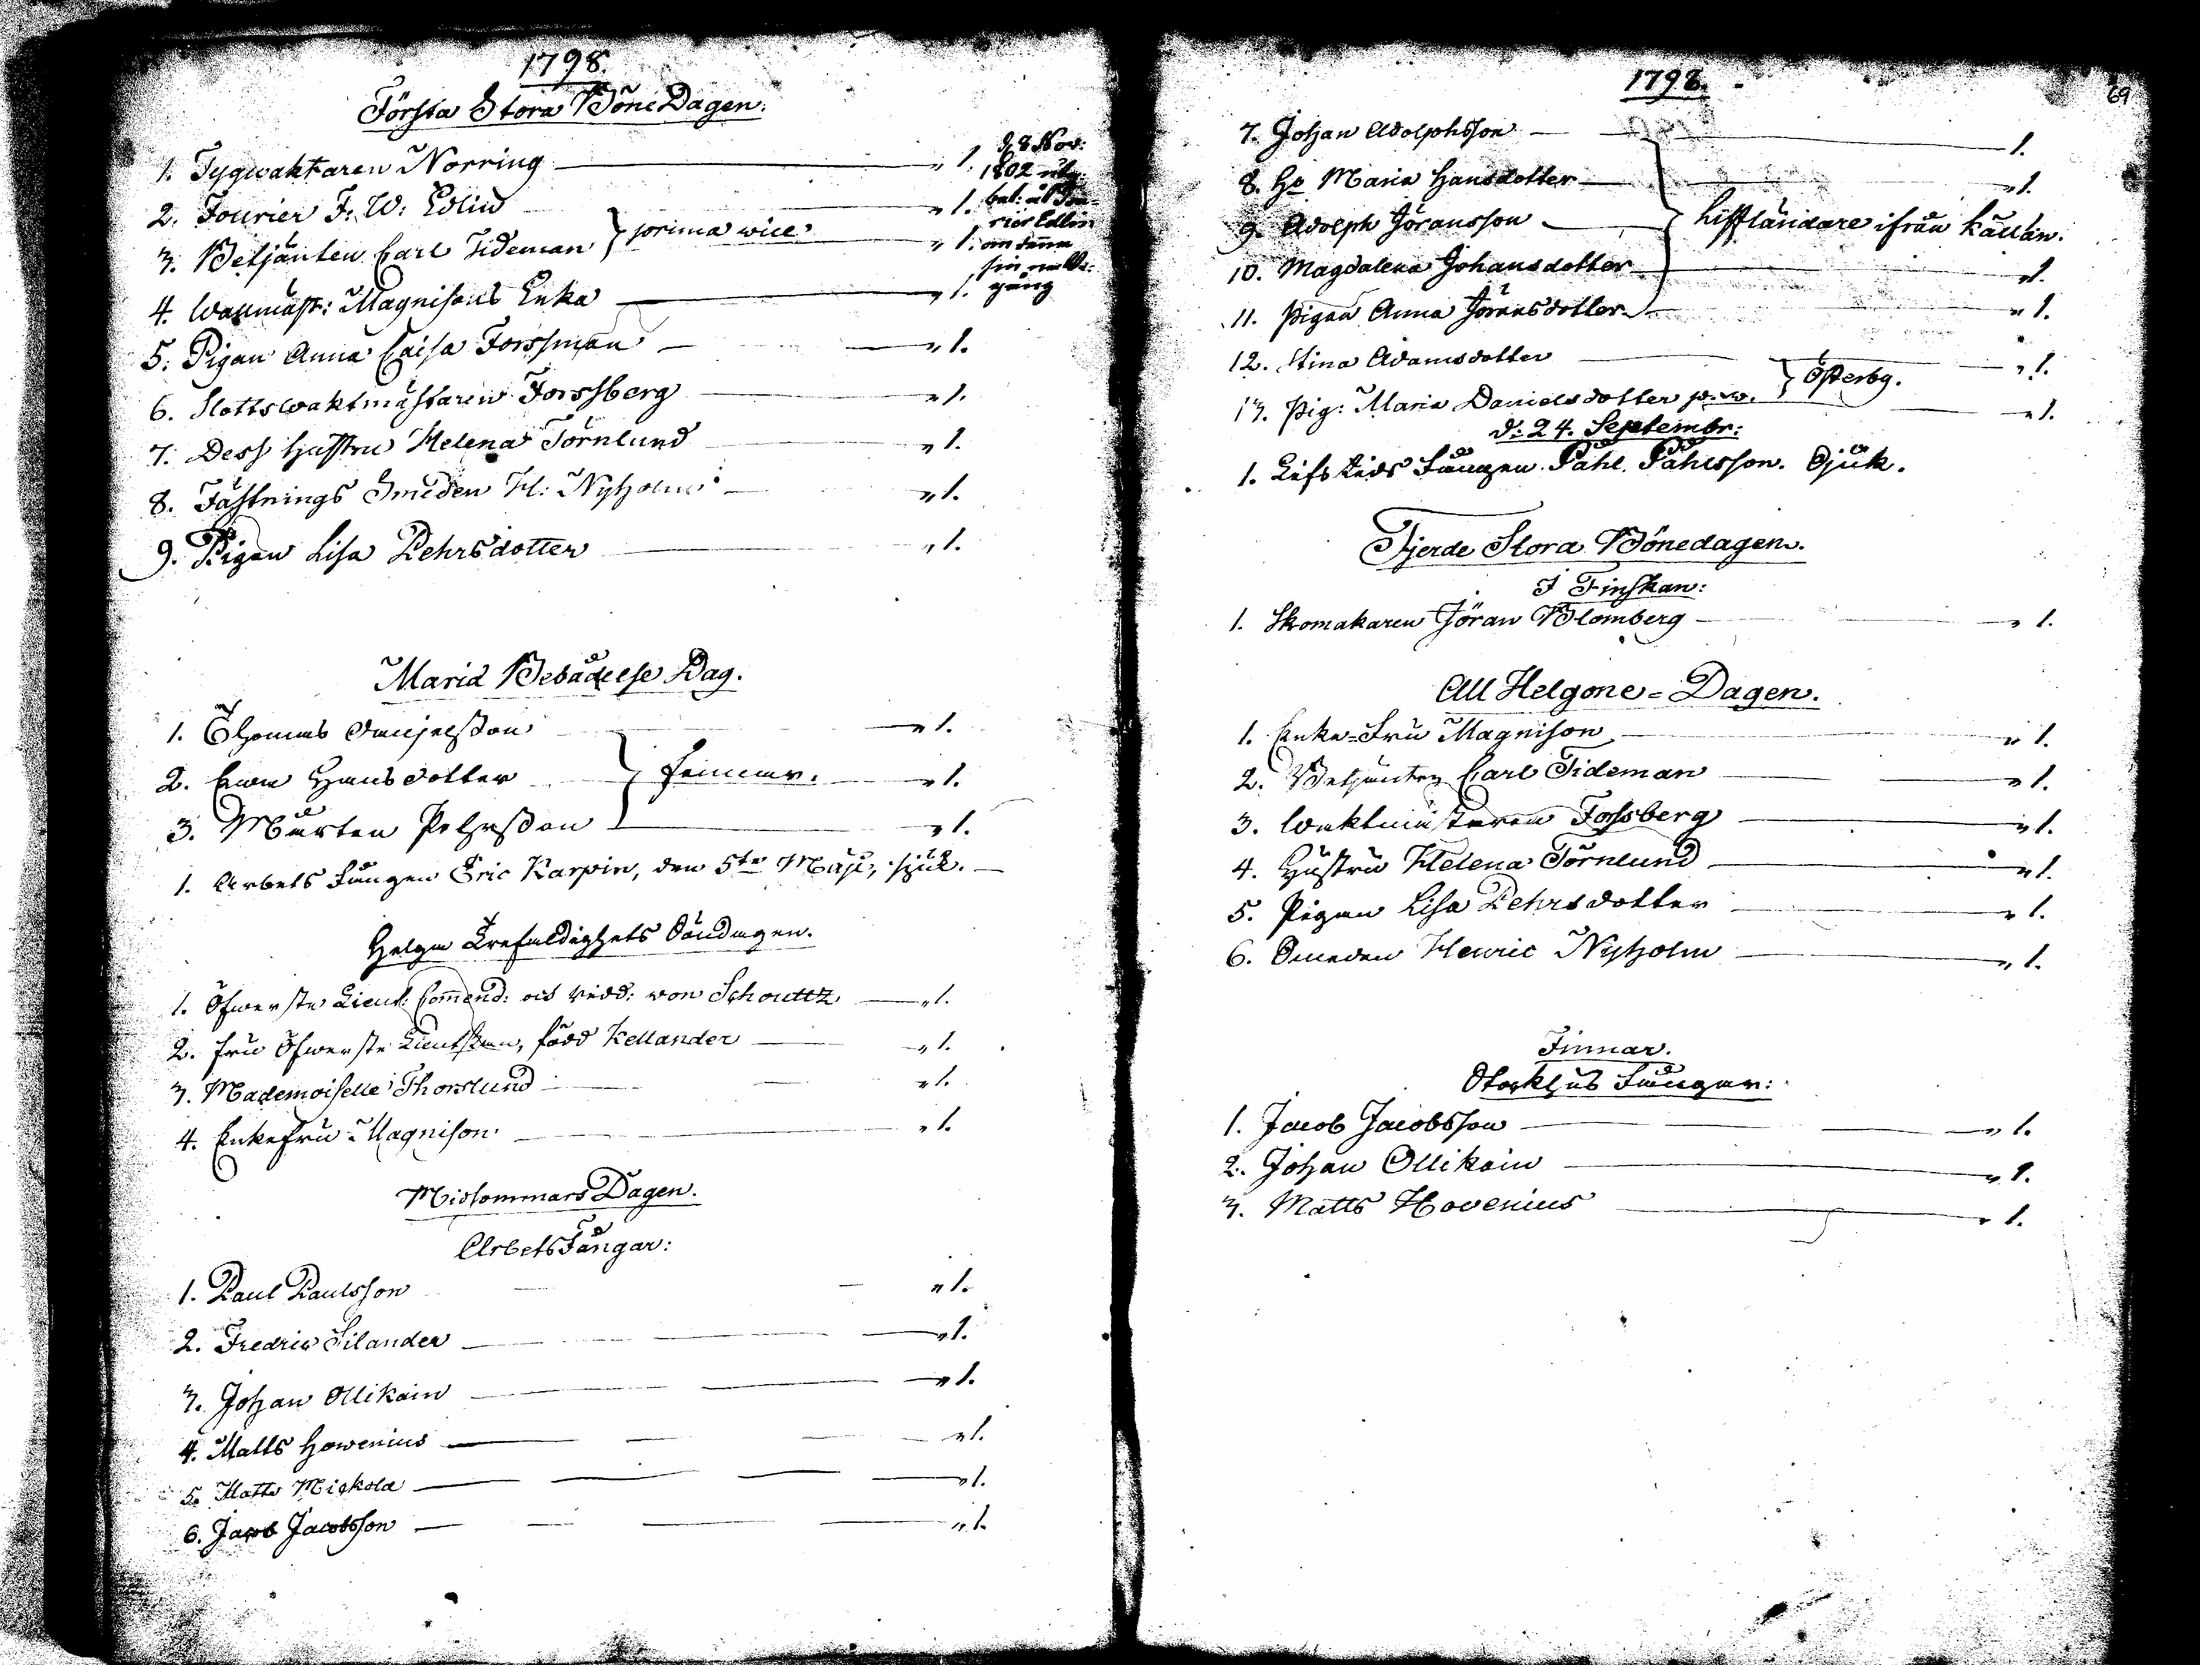 1798.
Första Stora BöneDagen.
1. Tygwaktaren Norring „ 1.
2. Fourier F. W: Edlin „ 1.
3. Betjänten Carl Tideman } prima vice „ 1.
4. Wallmäst: Magnisons Enka „ 1.
d. 8 Nov:
1802
rier Edlin
om denna
sin
gång
5. Pigan Anna Caisa Forssman „ 1.
6. Slottswaktmästaren Forssberg „ 1.
7. Dess Hustru Helena Törnlund „ 1.
8. Fästnings Smeden H: Nyholm „ 1.
9. Pigan Lisa Pehrsdotter „ 1.
Mariä Bebådelse Dag.
1. Thomas „ 1.
2. Hansdotter } Finnar. „ 1.
3. Mårten Pehrsson „ 1.
1. Arbets Fången Eric Karpin, den 5te Maji, sjuk.
Helga Trefaldighets Söndagen.
1. Öfwerste Lieut: Commend: och Ridd: von Schoultz „ 1.
2. Fru Öfwerste Lieutskan, född Kellander „ 1.
3. Mademoiselle Thorslund „ 1.
4. Enkefru Magnison „ 1.
Midsommars Dagen.
ArbetsFångar:
1. Paul Paulsson „ 1.
2. Fredric Silander „ 1.
3. Johan Ollikain „ 1.
4. Matts Howenius „ 1.
5. Matts Mickola „ 1.
6. Jacob Jacobsson „ 1.
1798.
69
7. Johan Adolphsson 1.
8. Ho Maria Hansdotter „ 1.
9. Adolph Jöransson } Liffländare ifrån Källan.
10. Magdalena Johansdotter „ 1.
11. Pigan Anna Jöransdotter „ 1.
12. Stina Adamsdotter „ 1.
13. Pig: Maria Danielsdotter p.v. } Österby. „ 1.
d: 24. Septembr:
1. Lifstids Fången Påhl Påhlsson. Sjuk.
Fjerde Stora Bönedagen.
I Finskan:
1. Skomakaren Jöran Blomberg „ 1.
All Helgone=Dagen.
1. Enke=Fru Magnison „ 1.
2. Betjänten Carl Tideman „ 1.
3. Waktmästaren Forssberg „ 1.
4. Hustru Helena Törnlund „ 1.
5. Pigan Lisa Pehrsdotter „ 1.
6. Smeden Henric Nyholm „ 1.
Finnar.
Stockhus Fångar:
1. Jacob Jacobsson „ 1.
2. Johan Ollikain „ 1.
3. Matts Hovenius „ 1.